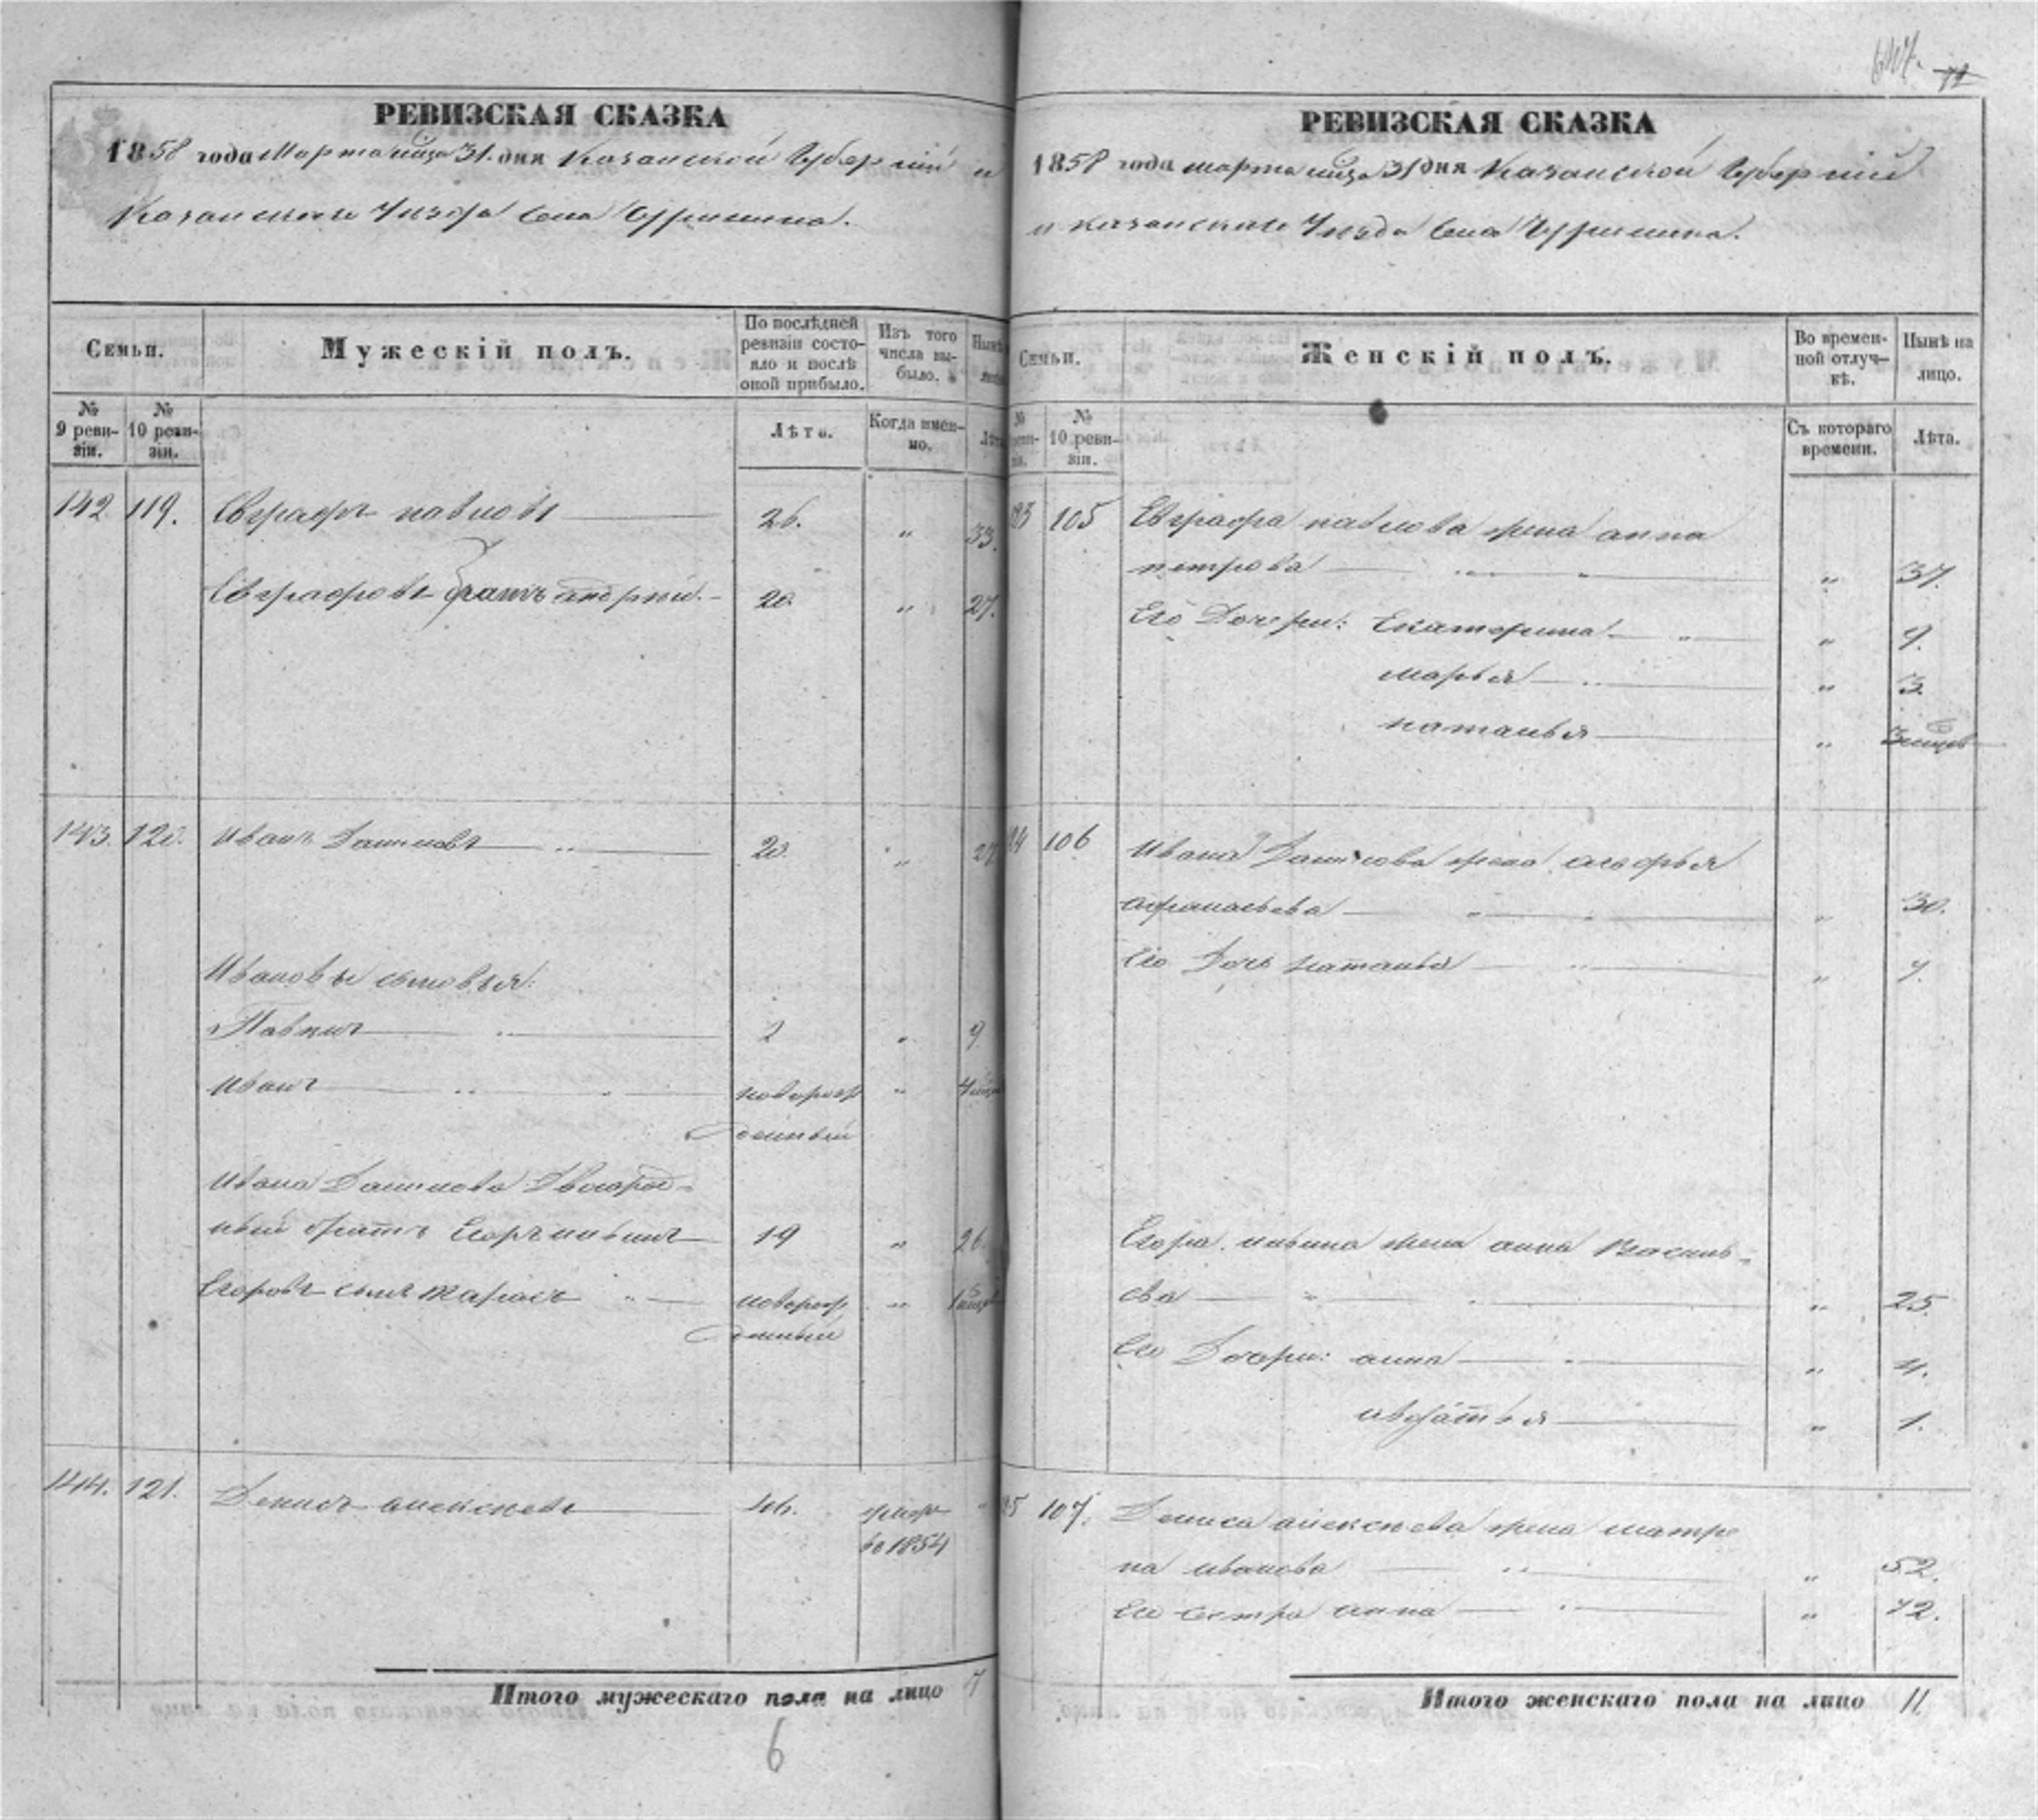 РЕВИЗСКАЯ СКАЗКА
1858 года Марта мца 31. дня Казанской Губернiи и
Казанскаго Уѣзда Села
Семьи.
Мужескiй полъ.
По послѣдней ревизiи состояло и послѣ оной прибыло.
Изъ того числа выбыло.
Нынѣ
№ 9 ревизiи.
№ 10 ревизiи.
Лѣта.
Когда именно.
Лѣта
142 119. Евграфъ павловъ 26. " 33.
Евграфовъ братъ андрей. 20. " 27.
143. 120. Иванъ Даниловъ 20. " 27
Ивановы сыновья:
2 " 9
Иванъ новорож " 4 мца
денный
Ивана Данилова Двоюрод-
ный братъ Егоръ ильинъ 19 " 26.
Егоровъ сынъ новорож "
денный
144. 121. Денисъ алексѣевъ 46. умер "
во 1854
Итого мужескаго пола на лицо 7
6
71
РЕВИЗСКАЯ СКАЗКА
1858 года марта мца 31 дня Казанской Губернiи
и казанскаго Уѣзда Села
Семьи.
Женскiй полъ.
Во временной отлучкѣ.
Нынѣ на лицо.
№ 10 ревизiи.
Съ котораго времени.
Лѣта.
105 Евграфа павлова жена анна
петрова " " " 37.
Его Дочери: Екатерина " " 9.
марья " 3.
наталья "
106 Ивана Данилова жена
афанасьева " " " 30.
Его Дочь наталья " 7.
Егора ильина жена анна Василь-
ева " " 25.
Его Дочери: анна " 4.
авдотья " 1.
107. Дениса алексѣева жена матре
на иванова " " 52.
Его сестра анна " 42.
Итого женскаго пола на лицо 11.